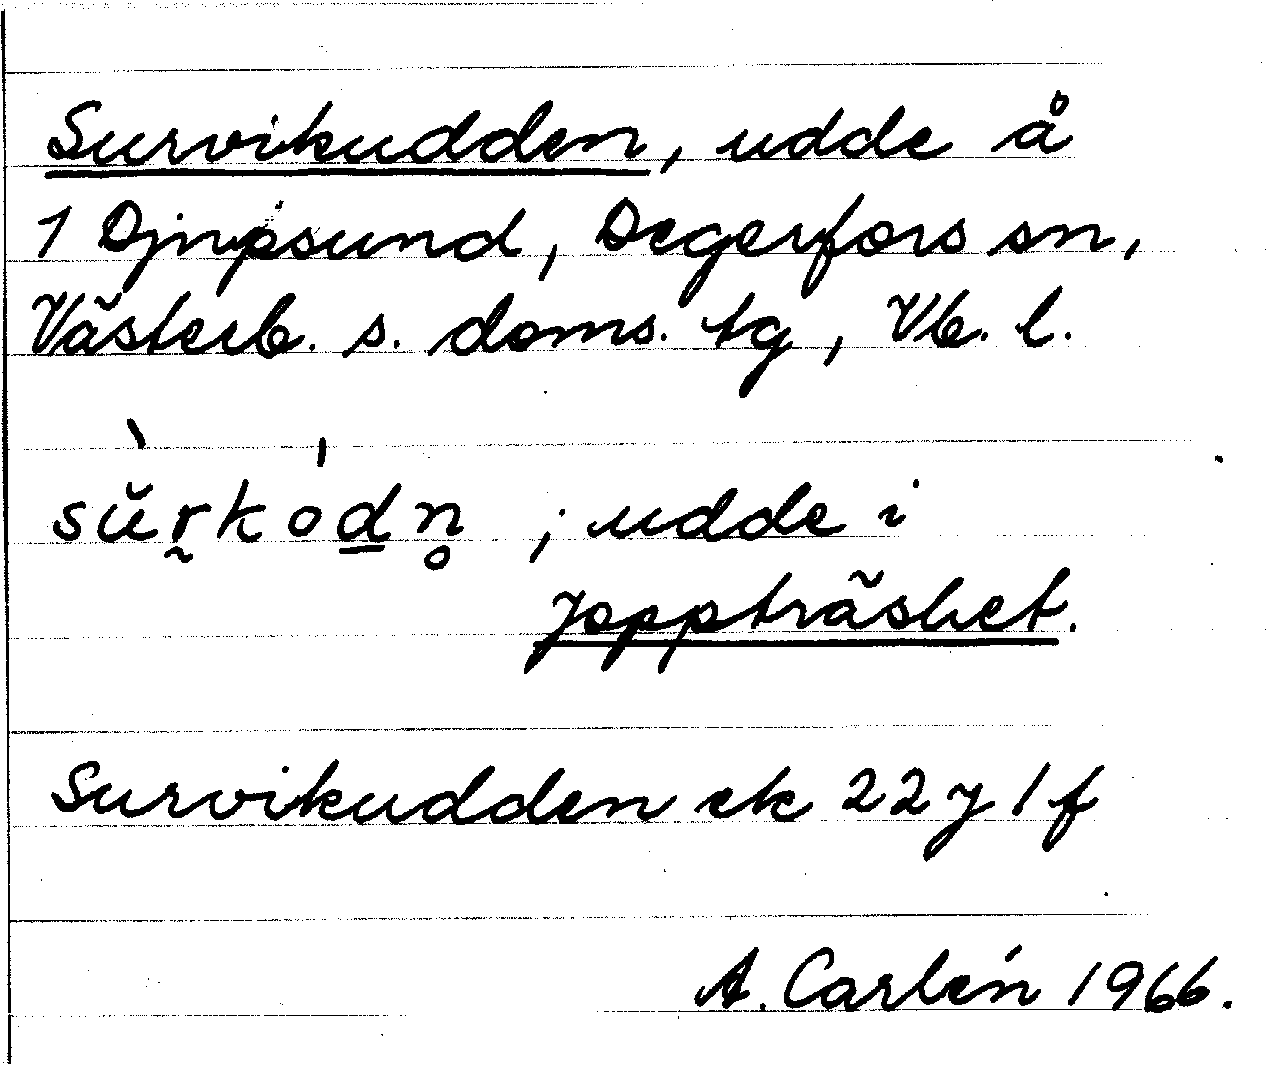 Survikudden, udde å
1 Djupsund, Degerfors sn,
Västerb. s. doms. tg, Vb. l.
sŭ̀r̰kó̇d̲n̥ ; udde i
Joppträsket.
Survikudden ek 22 J 1 f
A. Carlén 1966.